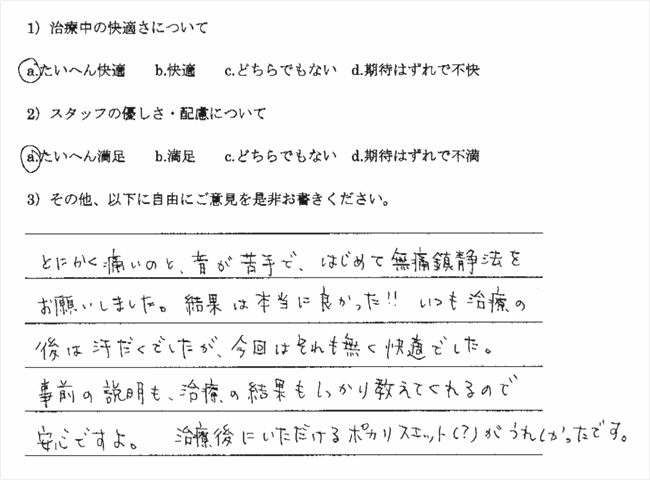 1）治療中の快適さについて
a.たいへん快適　b.快適　c.どちらでもない　d.期待はずれで不快
2）スタッフの優しさ・配慮について
a.たいへん満足　b.満足　c.どちらでもない　d.期待はずれで不満
3）その他、以下に自由にご意見を是非お書きください。
とにかく痛いのと、音が苦手で、はじめて無痛鎮静法を
お願いしました。結果は本当に良かった!! いつも治療の
後は汗だくでしたが、今回はそれも無く快適でした。
事前の説明も、治療の結果もしっかり教えてくれるので
安心ですよ。　治療後にいただけるポカリスエット(?)がうれしかったです。